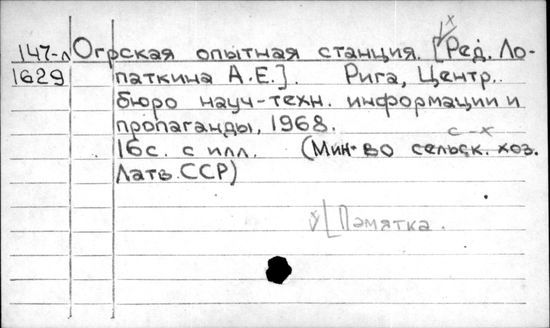 147-л Огрская опытная станция. [Ред. Ло-
1629 паткина А.Е.]. Рига, Центр.
бюро науч-техн. информации и
пропаганды, 1968.
с-х
16с. с илл. (Мин-во сельск. хоз.
Латв. ССР)
[Памятка.